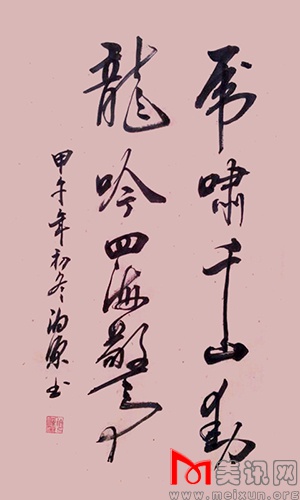 虎啸千山动
龙吟四海惊
甲午年初冬 泊源书
美讯网
www.meixun.org